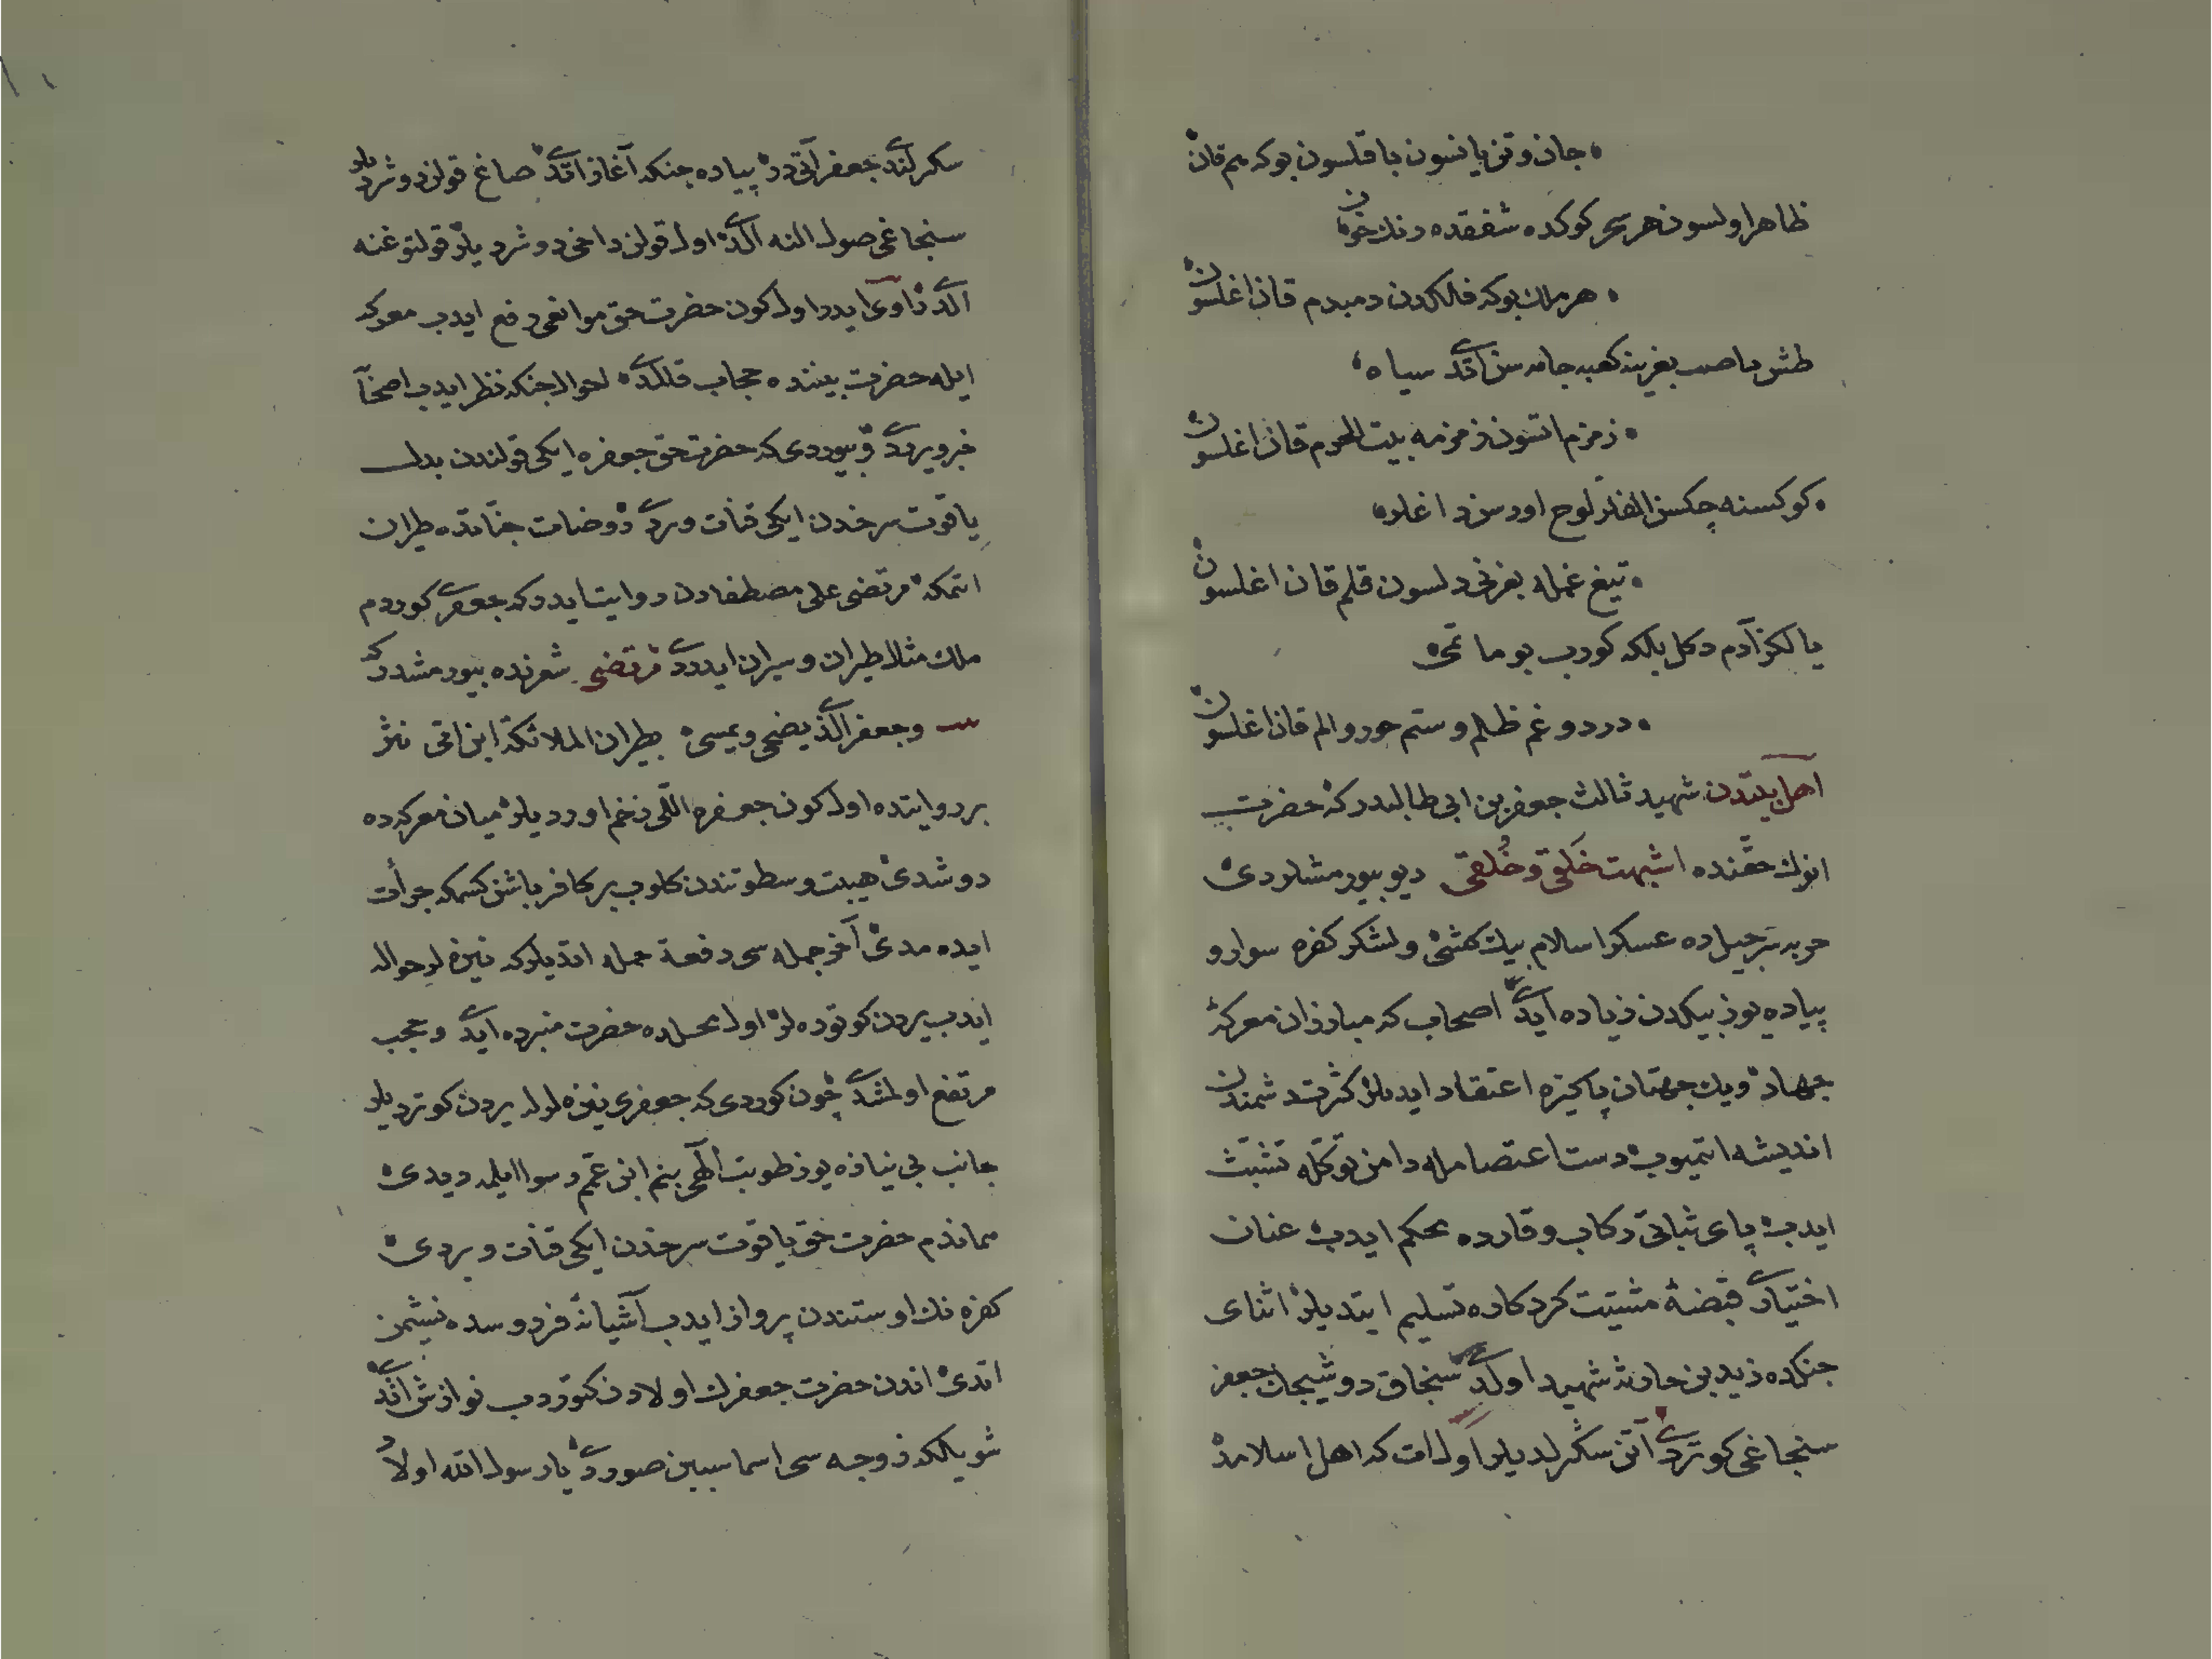 جان و تن یانسون یاقلسون بو که هم قان
ظاهر اولسون هر سحر کوکده شفقده رنك خون
هر ملك بو که فلکدن دمبدم قان اغلسون
بغرینه کعبه جامه سن اتدی سیاه
زمزم اتسون زمزمه بیت الحرم قان اغلسون
کوکسنه چکسن الفلر لوح اورسن داغلر
تیغ غمله بغرنی دلسون قلم قان اغلسون
یالکز آدم دکل بلکه کورب بو ماتمی
درد و غم ظلم و ستم جور و الم قان اغلسون
اهل بیتدن شهید ثالث جعفر بن ابی طالبدر که حضرت
انوك حقنده اشبهت خلقی و خلقی دیو بیورمشلردی
حربده عسکر اسلام بیك کشی و لشکر کفره سوار و
پیاده یوز بیکدن زیاده ایدی اصحاب که مبارزان معرکهٔ
جهاد و یك جهتان پاکیزه اعتقاد ایدیلر کثرت دشمندن
اندیشه اتمیوب دست اعتصامله دامن توکله تشبث
ایدب پای ثباتی رکاب وقارده محکم ایدب عنان
اختیاری قبضهٔ مشیت کردکاره تسلیم ایتدیلر اثنای
جنکده زید بن حارثه شهید اولدی سنجاق دوشیجك جعفر
سنجاغی کوتردی آتن سکرلدیلر اول ات که اهل اسلامده
سکرلندی جعفر آتی در پیاده جنکه آغاز اتدی صاغ قولن دوشردیلر
سنجاغی صول النه الدی اول قولن داخی دوشردیلر قولتوغنه
الدی راوی ایدر اول کون حضرت حق موانعی رفع ایدب معرکه
ایله حضرت بیننده حجاب قلمدی احوال جنکه نظر ایدب اصحابه
خبر ویردی و بیوردی که حضرت حق جعفره ایکی قولندن بدل
یاقوت سرخدن ایکی قنات وردی روضات جناتده طیران
اتمکه مرتضی علی مصطفادن روایت ایدر که جعفری کوردم
ملك مثلا طیران و سیران ایدردی مرتضی شعرنده بیورمشدر که
وجعفر الذی یضحی ویمسی یطیر الملائکة ابن امی نثر
بر روایتده اول کون جعفره اللی زخم اوردیلر میان معرکه ده
دوشدی هیبت و سطوتندن کلوب بر کافر باشن کسمکه جرأت
ایده مدی آخر جمله سی دفعة حمله اتدیلر که نیزه لر حواله
ایدب یردن کوتوره لر اول محلده حضرت منبرده ایدی و حجب
مرتفع اولمشدی چون کوردی که جعفری نیزه لرله یردن کوتردیلر
جانب بی نیازه یوز طوتب الهی بنم ابن عمم رسوا ایلمه دیدی
هماندم حضرت حق یاقوت سرخدن ایکی قنات ویردی
کفره نك اوستندن پرواز ایدب آشیانهٔ فردوسده نشیمن
اتدی اندن حضرت جعفرك اولادن کتوردب نوازش اتدی
شویله که زوجه سی اسما سببن صوردی یا رسول الله اولا